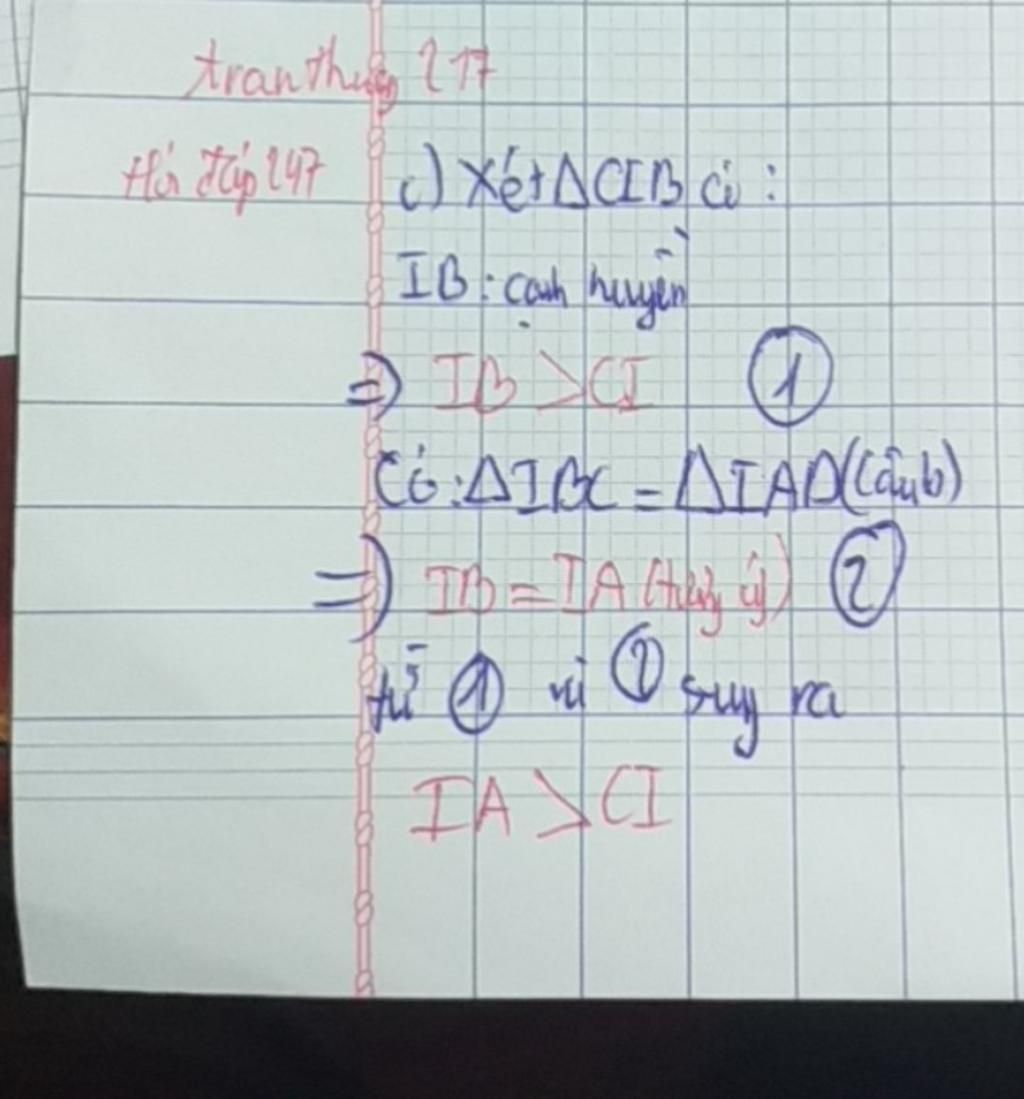 tranthuy217
Hỏi đáp 247
c) Xét ΔCIB có:
IB: cạnh huyền
=> IB > CI ①
Có: ΔIBC = ΔIAD (câu b)
=> IB = IA (tương ứ) ②
từ ① và ② suy ra
IA > CI